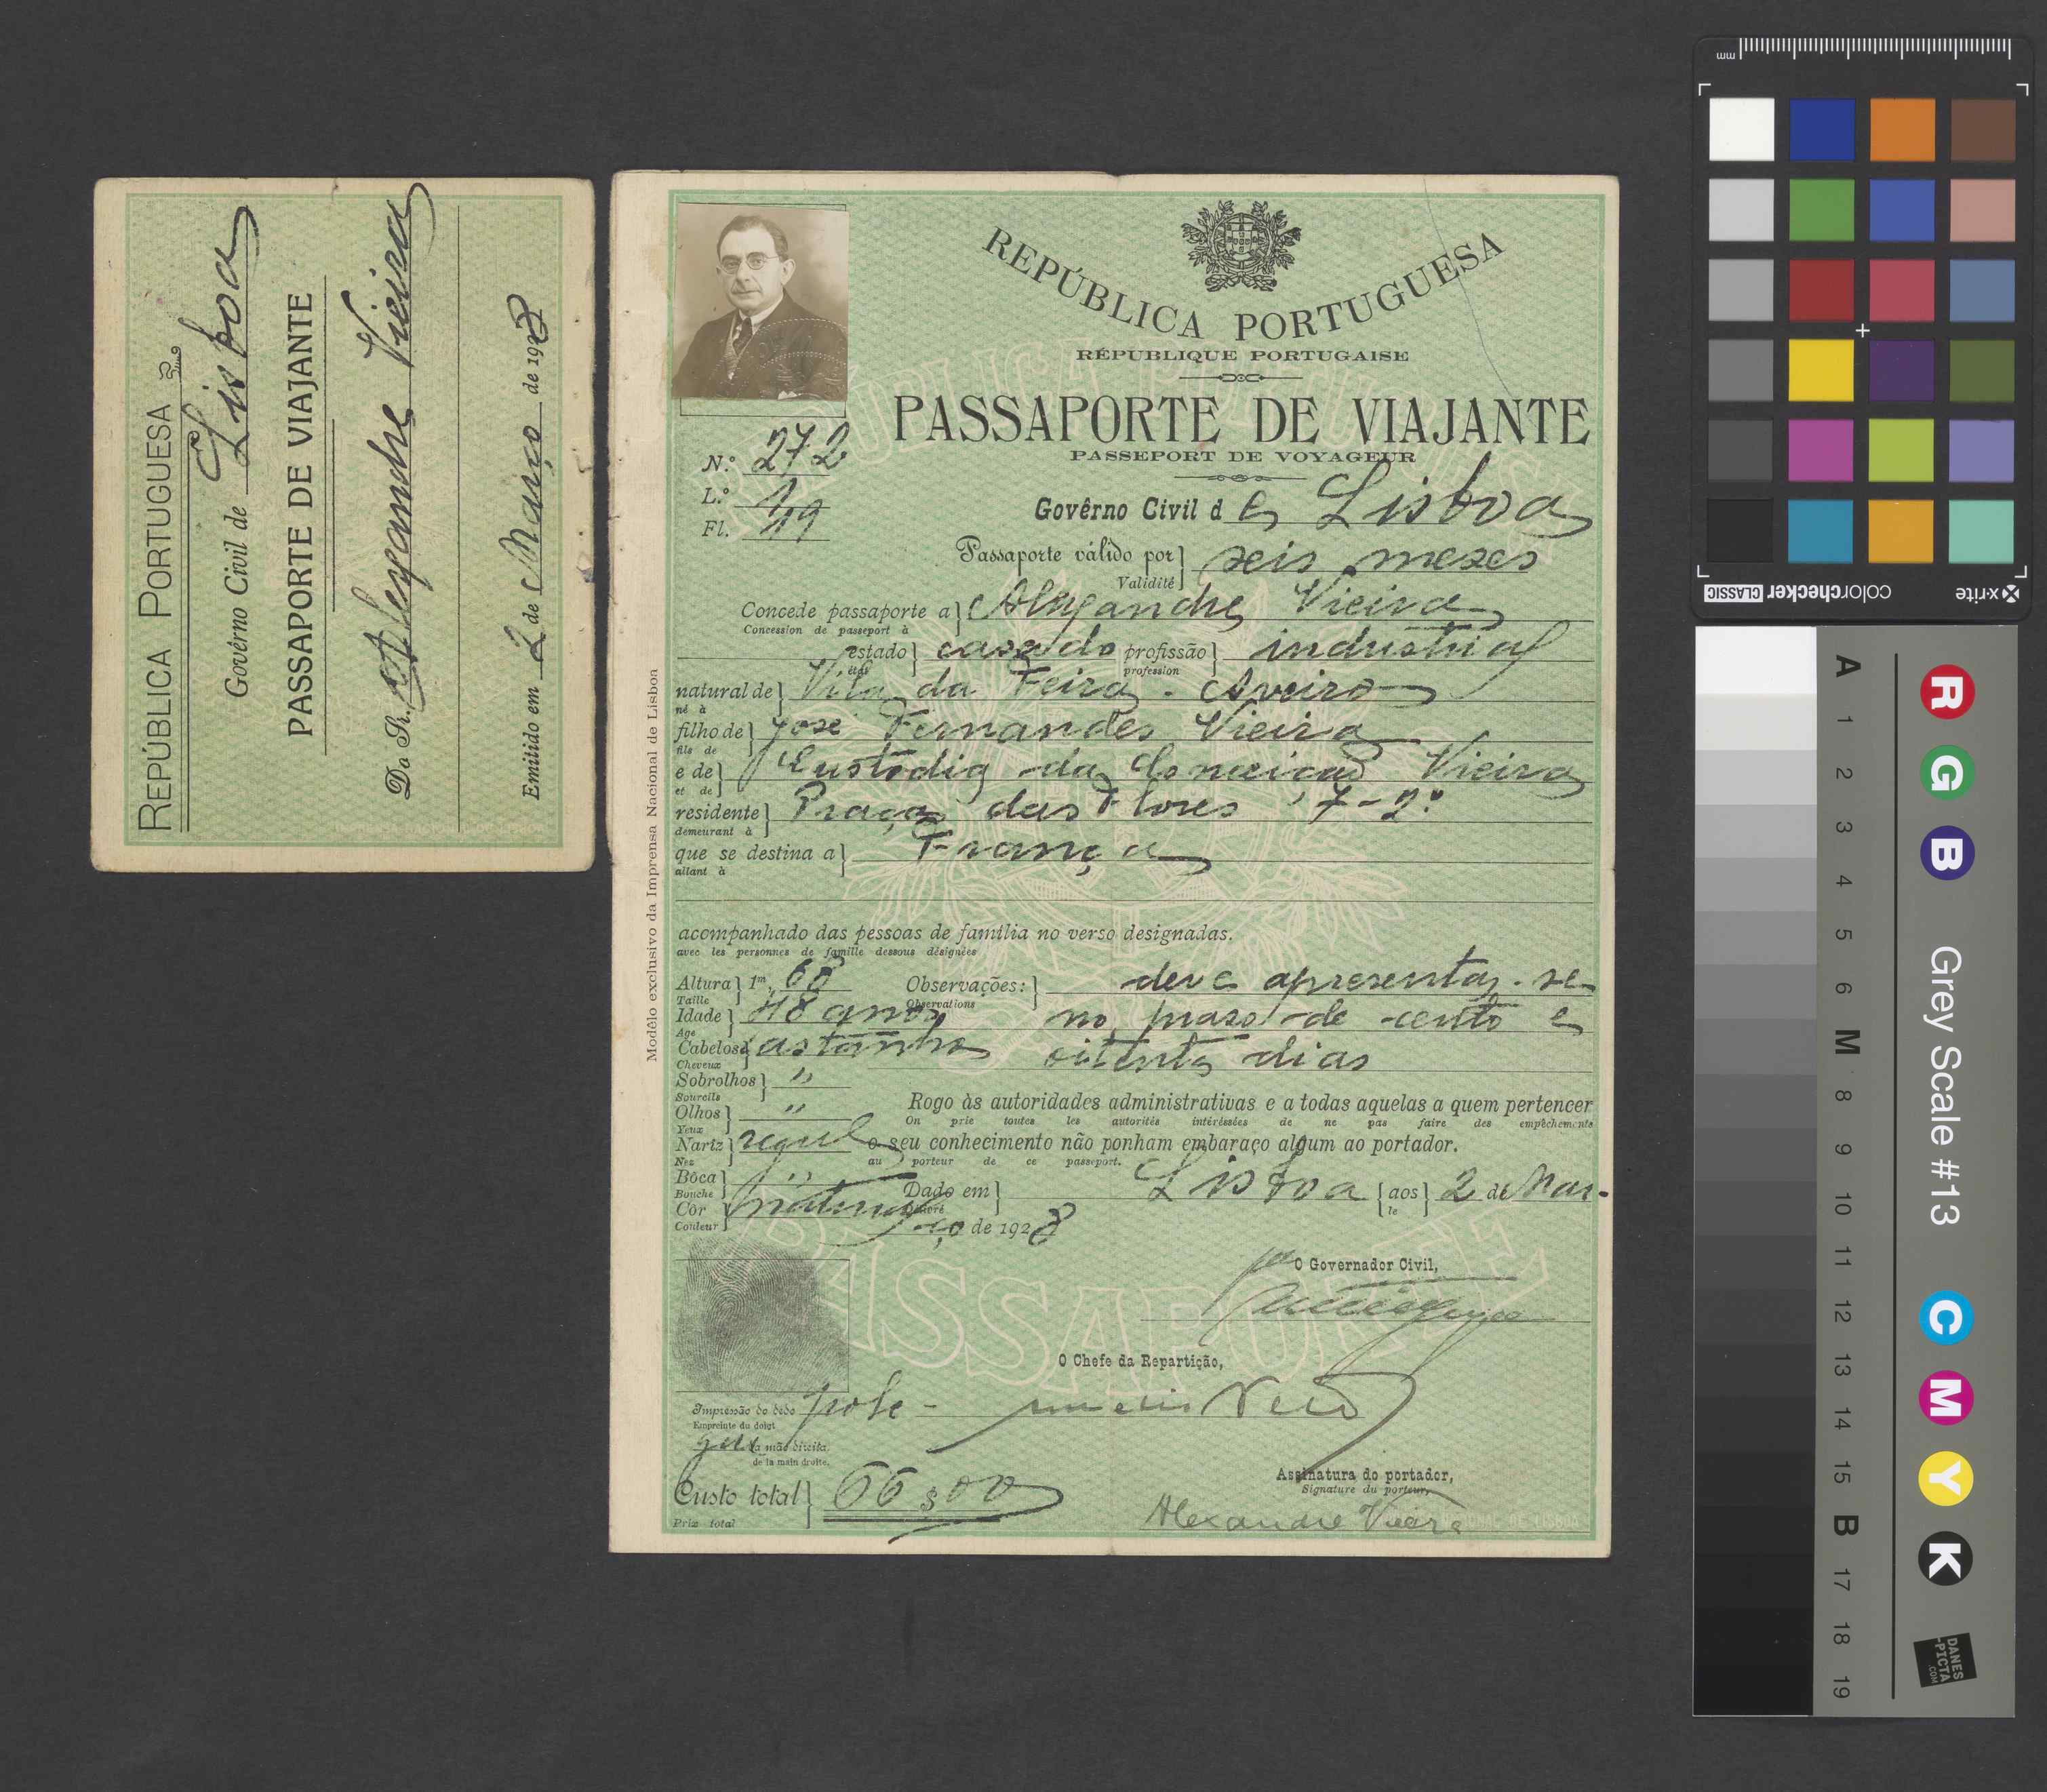 REPÚBLICA PORTUGUESA
Govêrno Civil de Lisboa
PASSAPORTE DE VIAJANTE
Do Sr. Alexandre Vieira
Emitido em 2 de Março de 1928
Modêlo exclusivo da Imprensa Nacional de Lisboa
REPÚBLICA PORTUGUESA
RÉPUBLIQUE PORTUGAISE
PASSAPORTE DE VIAJANTE
PASSEPORT DE VOYAGEUR
N.º 272
L.º
Fl. 49
Govêrno Civil de Lisboa
Passaporte válido por} seis mezes
Validité
Concede passaporte a} Alexandre Vieira
Concession de passeport à
estado} casado profissão} industrial
état profession
natural de} Vila da Feira - Aveiro
né à
filho de} José Fernandes Vieira
fils de
e de} Custódia da Conceição Vieira
et de
residente} Praça das Flores, 7-2º
demeurant à
que se destina a} França
allant à
acompanhado das pessoas de família no verso designadas.
avec les personnes de famille dessous désignées
Altura} 1m, 68 Observações:} deve apresentar-se
Taille Observations
Idade} 48 anos no praso de cento e
Age
Cabelos} Castanhos oitenta dias
Cheveux
Sobrolhos} "
Sourcils
Olhos} " Rogo às autoridades administrativas e a todas aquelas a quem pertencer
Yeux On prie toutes les autorités intéréssées de ne pas faire des empêchements
Nariz} regul o seu conhecimento não ponham embaraço algum ao portador.
Nez au porteur de ce passeport.
Bôca} " Dado em} Lisboa {aos} 2 de Mar-
Bouche Délivré le
Côr} natural ço de 1928
Couleur
O Governador Civil,
O Chefe da Repartição,
Impressão do dedo pole-
Empreinte du doigt
gar da mão direita.
de la main droite.
Assinatura do portador,
Signature du porteur,
Custo total} 66$00
Prix total
Alexandre Vieira
mm
x-rite
colorchecker CLASSIC
R G B Grey Scale #13 C M Y K
A 1 2 3 4 5 6 M 8 9 10 11 12 13 14 15 B 17 18 19
DANES
-PICTA
.COM